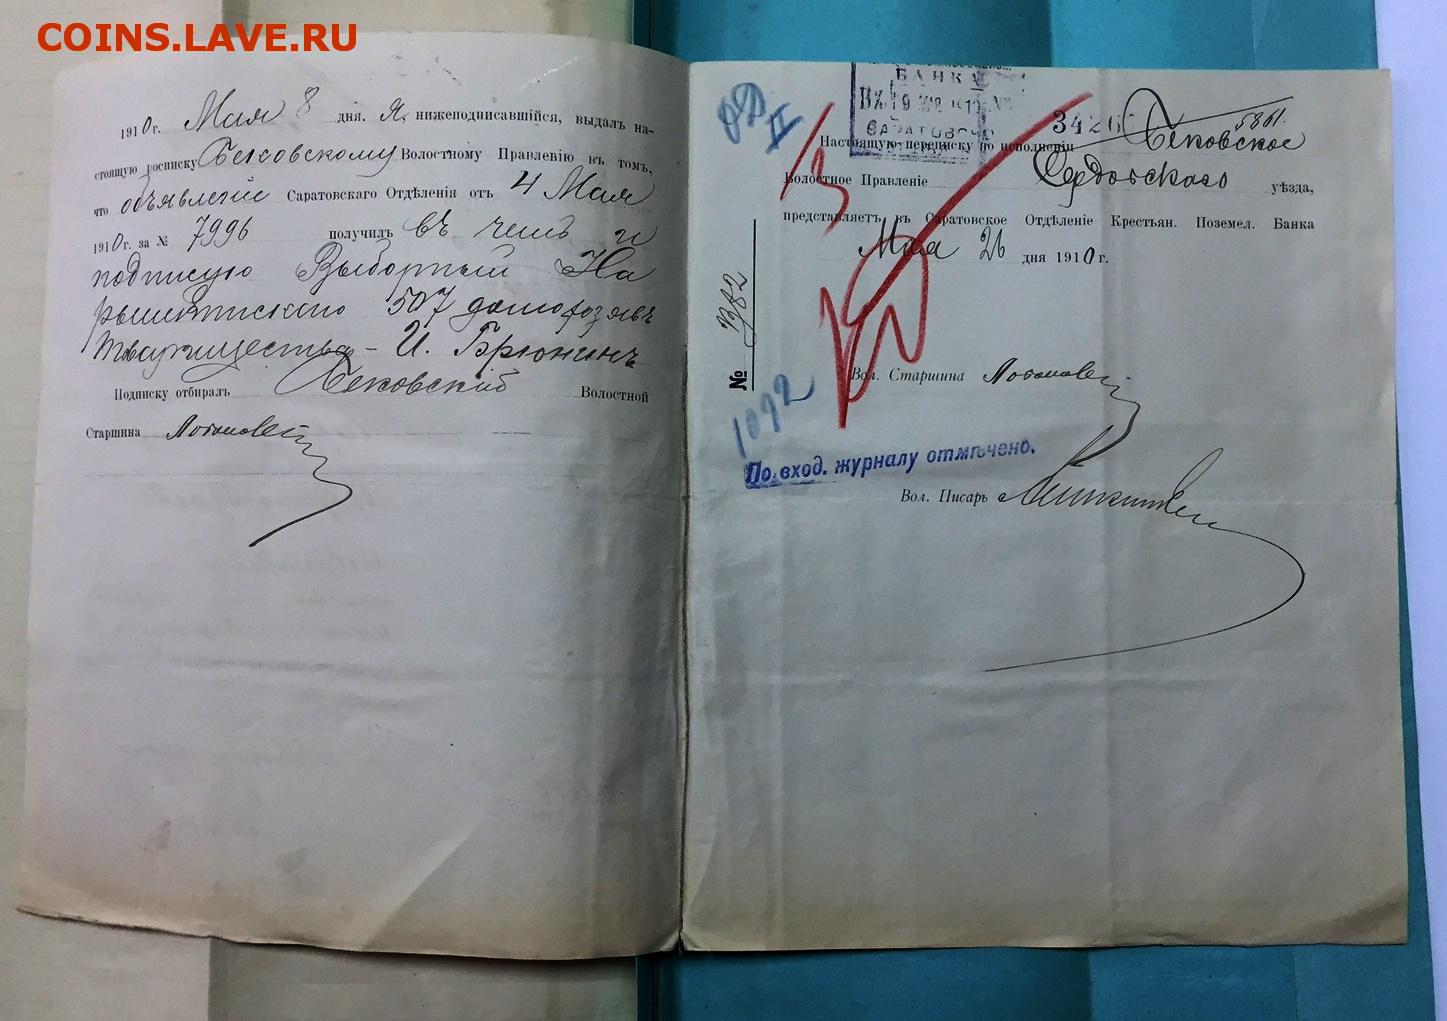 COINS.LAVE.RU
1910 г. Мая 8 дня. Я, нижеподписавшійся, выдалъ на-
стоящую росписку Бековскому Волостному Правленію въ томъ,
что объявленіе Саратовскаго Отдѣленія отъ 4 Мая
1910 г. за № 7996 получилъ въ чемъ и
подписуюсь Выборный На
рышкинскаго 507 домохозяевъ
товарищества - И. Брюнинъ
Подписку отбиралъ Бековскій Волостной
Старшина
БАНКА
ВХ. 19
САРАТОВСКО
II
34266
5861.
Настоящую переписку по исполненіи Бековское
Волостное Правленіе Сердобскаго уѣзда,
представляетъ въ Саратовское Отдѣленіе Крестьян. Поземел. Банка
Мая 26 дня 1910 г.
№ 1382
1092
Вол. Старшина
По вход. журналу отмѣчено.
Вол. Писарь